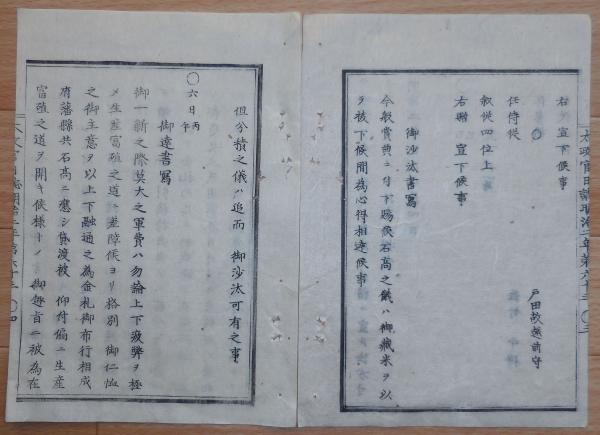 太政官日誌明治二年第六十三 〇三
右 宣下候事
戸田故越前守
〇
任侍従
叙従四位上
右贈 宣下候事
御沙汰書写
今般賞典ニ付下賜候石高之儀ハ御蔵米ヲ以
ヲ被下候間為心得相達候事
但分積之儀ハ追而 御沙汰可有之事
〇六日丙午
御達書写
御一新之際莫大之軍費ハ勿論上下疲弊ヲ極
メ生産富殖之道ニ差障候ヨリ格別 御仁恤
之御主意ヲ以上下融通之為金札御布行相成
府藩縣共石高ニ應シ貸渡被 仰付偏ニ生産
富殖之道ヲ開キ候様トノ 御趣旨ニ被為在
太政官日誌明治二年第六十三 〇四